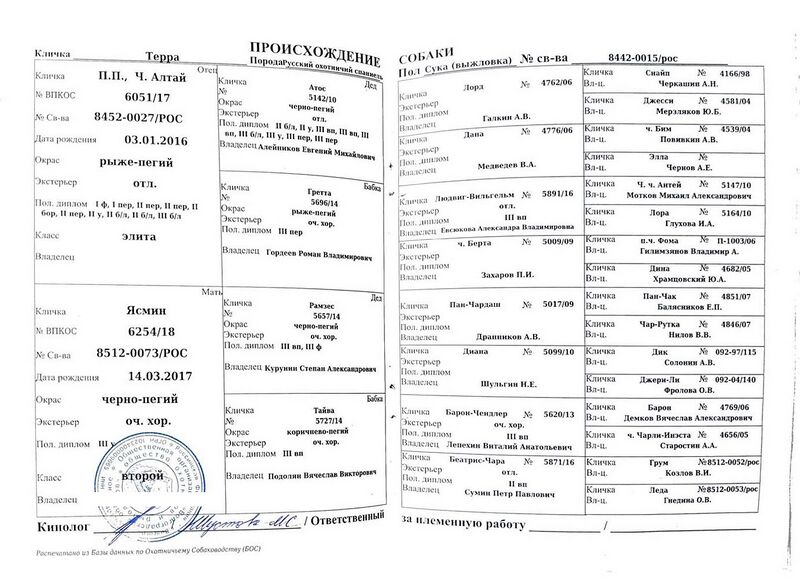 ПРОИСХОЖДЕНИЕ СОБАКИ
Кличка Терра Порода Русский охотничий спаниель Пол Сука (выжловка) № св-ва 8442-0015/рос
Отец
Кличка П.П., Ч. Алтай
№ ВПКОС 6051/17
№ Св-ва 8452-0027/РОС
Дата рождения 03.01.2016
Окрас рыже-пегий
Экстерьер отл.
Пол. диплом I ф, I пер, II пер, II пер, II
бор, II пер, II у, II б/л, II б/л, III б/л
Класс элита
Владелец
Мать
Кличка Ясмин
№ ВПКОС 6254/18
№ Св-ва 8512-0073/РОС
Дата рождения 14.03.2017
Окрас черно-пегий
Экстерьер оч. хор.
Пол. диплом III у
Класс второй
Владелец
Дед
Кличка Атос
№ 5142/10
Окрас черно-пегий
Экстерьер отл.
Пол. диплом II б/л, II у, III вп, III вп, III
вп, III б/л, III у, III пер, III пер
Владелец Алейников Евгений Михайлович
Бабка
Кличка Гретта
№ 5696/14
Окрас рыже-пегий
Экстерьер оч. хор.
Пол. диплом III пер
Владелец Гордеев Роман Владимирович
Дед
Кличка Рамзес
№ 5657/14
Окрас черно-пегий
Экстерьер оч. хор.
Пол. диплом III вп, III ф
Владелец Курунин Степан Александрович
Бабка
Кличка Тайва
№ 5727/14
Окрас коричнево-пегий
Экстерьер оч. хор.
Пол. диплом III вп
Владелец Подолин Вячеслав Викторович
Кличка Лорд 4762/06
Экстерьер
Пол. диплом
Владелец Галкин А.В.
Кличка Дана № 4776/06
Экстерьер
Пол. диплом
Владелец Медведев В.А.
Кличка Людвиг-Вильгельм № 5891/16
Экстерьер отл.
Пол. диплом III вп
Владелец Евсюкова Александра Владимировна
Кличка ч. Берта № 5009/09
Экстерьер
Пол. диплом
Владелец Захаров П.И.
Кличка Пан-Чардаш № 5017/09
Экстерьер
Пол. диплом
Владелец Дранников А.В.
Кличка Диана № 5099/10
Экстерьер
Пол. диплом
Владелец Шульгин Н.Е.
Кличка Барон-Чендлер № 5620/13
Экстерьер оч. хор.
Пол. диплом III вп
Владелец Лепехин Виталий Анатольевич
Кличка Беатрис-Чара № 5871/16
Экстерьер отл.
Пол. диплом II вп
Владелец Сумин Петр Павлович
Кличка Снайп № 4166/98
Вл-ц. Черкашин А.Н.
Кличка Джесси № 4581/04
Вл-ц. Мерзляков Ю.Б.
Кличка ч. Бим № 4539/04
Вл-ц. Повивкин А.В.
Кличка Элла №
Вл-ц. Чернов А.Е.
Кличка Ч. ч. Антей № 5147/10
Вл-ц. Мотков Михаил Александрович
Кличка Лора № 5164/10
Вл-ц. Глухова И.А.
Кличка п.ч. Фома № П-1003/06
Вл-ц. Гилимзянов Владимир А.
Кличка Дина № 4682/05
Вл-ц. Храмцовский Ю.А.
Кличка Пан-Чак № 4851/07
Вл-ц. Балясников Е.П.
Кличка Чар-Рутка № 4846/07
Вл-ц. Нилов В.В.
Кличка Дик № 092-97/115
Вл-ц. Солонин А.В.
Кличка Джери-Ли № 092-04/140
Вл-ц. Фролова О.В.
Кличка Барон № 4769/06
Вл-ц. Демков Вячеслав Александрович
Кличка ч. Чарли-Инэста № 4656/05
Вл-ц. Старостин А.А.
Кличка Грум №8512-0052/рос
Вл-ц. Козлов В.И.
Кличка Леда №8512-0053/рос
Вл-ц. Гнедина О.В.
Кинолог Шустова МС / Ответственный за племенную работу /
Распечатано из Базы данных по Охотничьему Собаководству (БОС)